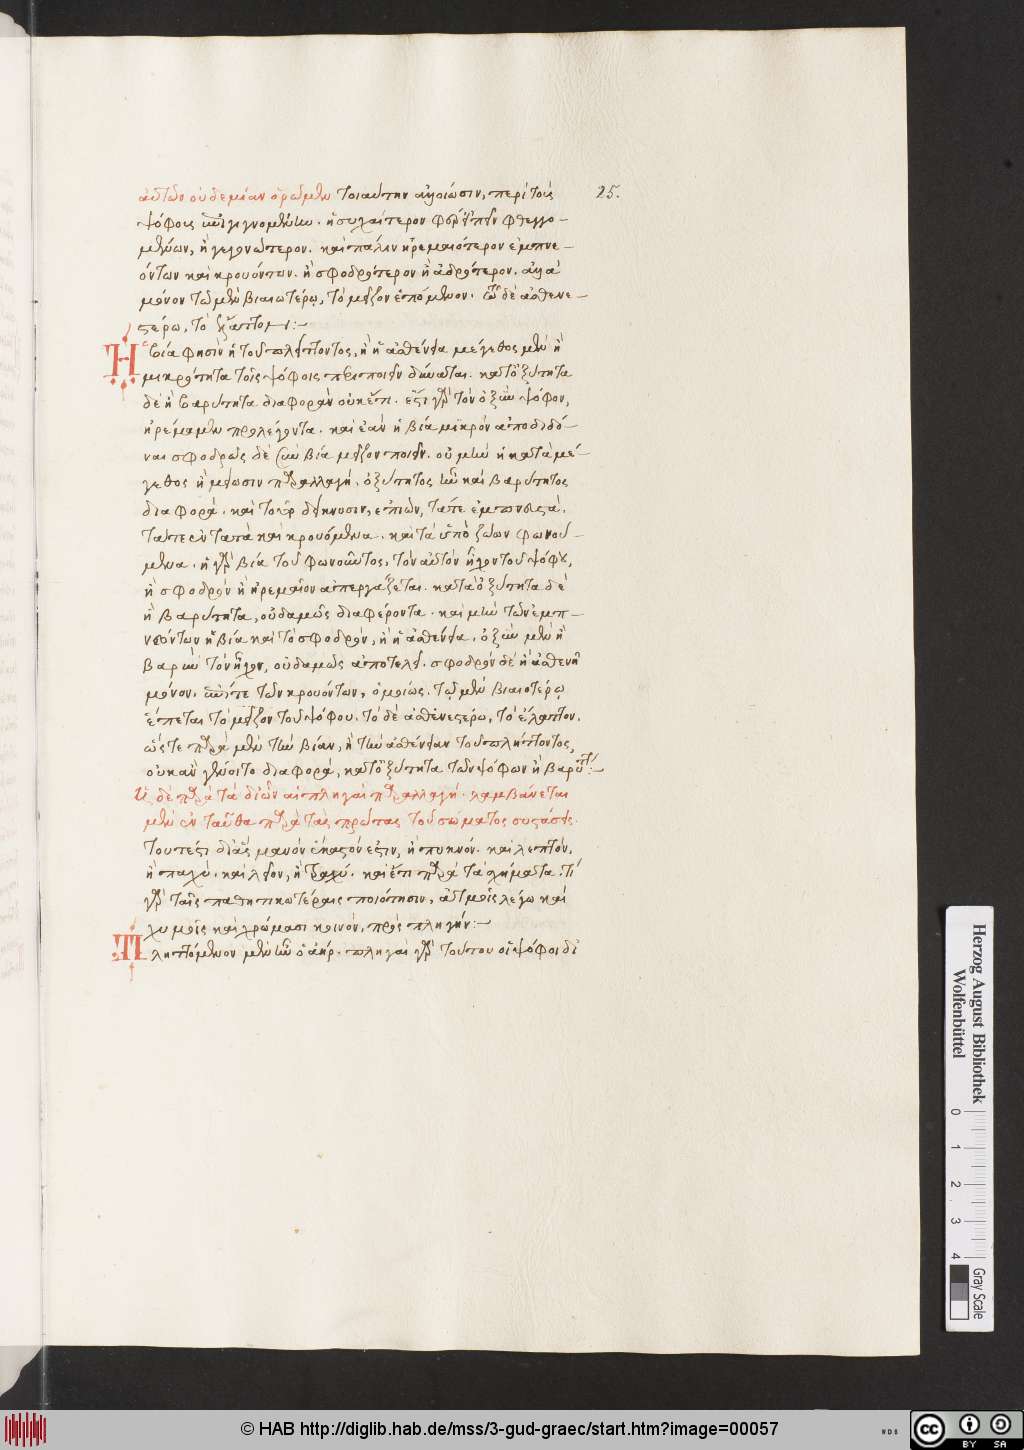 αὐτῶν οὐδεμίαν ὁρῶμεν τοιαύτην ἀλλοίωσιν, περὶ τοὺς
25.
ψόφους γιγνομένην. ἡσυχαίτερον φθεγγο-
μένων, ἢ γεγωνότερον. καὶ πάλιν ἠρεμαιότερον ἐμπνε-
όντων καὶ κρουόντων. ἢ σφοδρότερον ἢ ἁδρότερον. ἀλλὰ
μόνον τῷ μὲν βιαιοτέρῳ, τὸ μεῖζον ἑπόμενον. τῷ δὲ ἀσθενε-
στέρῳ, τὸ ἔλαττον:-
Ἡ βία φησὶν ἡ τοῦ πλήττοντος, ἢ ἡ ἀσθένεια μέγεθος μὲν ἢ
μικρότητα τοῖς ψόφοις περιποιεῖν δύναται. κατ' ὀξύτητα
δὲ ἢ βαρύτητα διαφορὰν οὐκέτι. ἔστι γὰρ τὸν ὀξὺν ψόφον,
ἠρέμα μὲν προλέγοντα. καὶ ἐὰν ἡ βία μικρὸν ἀποδιδό-
ναι σφοδρῶς δὲ σὺν βία μεῖζον ποιεῖν. οὐ μὴν ἡ κατὰ μέ-
γεθος ἢ μείωσιν παραλλαγή. ὀξύτητος ἦν καὶ βαρύτητος
διαφορά. καὶ τοῦτο δείκνυσιν, ἐπιὼν, τά τε ἐμπνευστά.
τά τε ἐντατὰ καὶ κρουόμενα. καὶ τὰ ὑπὸ ζώων φωνού-
μενα. ἡ γὰρ βία τοῦ φωνοῦντος, τὸν αὐτὸν ἦχον τοῦ ψόφου,
ἢ σφοδρὸν ἢ ἠρεμαῖον ἀπεργάζεται. κατὰ ὀξύτητα δὲ
ἢ βαρύτητα, οὐδαμῶς διαφέροντα. καὶ μὴν τῶν ἐμπ-
νεόντων ἡ βία καὶ τὸ σφοδρὸν, ἢ ἡ ἀσθένεια, ὀξὺν μὲν ἢ
βαρὺν τὸν ἦχον, οὐδαμῶς ἀποτελεῖ. σφοδρὸν δὲ ἢ ἀσθενῆ
μόνον. τῶν κρουόντων, ὁμοίως. τῷ μὲν βιαιοτέρῳ
ἕπεται τὸ μεῖζον τοῦ ψόφου. τὸ δὲ ἀσθενεστέρω, τὸ ἔλαττον.
ὥστε παρὰ μὲν τὴν βίαν, ἢ τὴν ἀσθένειαν τοῦ πλήττοντος,
οὐκ ἂν γένοιτο διαφορά, κατ' ὀξύτητα τῶν ψόφων ἢ βαρύτητα:-
Ἡ δὲ παρὰ τὰ δι' ὧν αἱ πληγαὶ παραλλαγή. λαμβάνεται
μὲν ἐνταῦθα παρὰ τὰς πρώτας τοῦ σώματος συστάσεις.
τουτέστι δι' ἃς μανόν ἕκαστόν ἐστιν, ἢ πυκνόν. καὶ λεπτόν,
ἢ παχύ. καὶ λεῖον, ἢ τραχύ. καὶ ἔτι παρὰ τὰ σχήματα. τί
γὰρ ταῖς παθητικωτέραις ποιότησιν, ἀτμοῖς λέγω καὶ
χυμοῖς καὶ χρώμασι κοινόν, πρὸς πληγήν:-
Πληττόμενον μὲν ἦν ὁ ἀήρ. πληγαὶ γὰρ τούτου οἱ ψόφοι δι
Herzog August Bibliothek
Wolfenbüttel
0 1 2 3 4
Gray Scale
© HAB http://diglib.hab.de/mss/3-gud-graec/start.htm?image=00057
WDB
cc BY SA